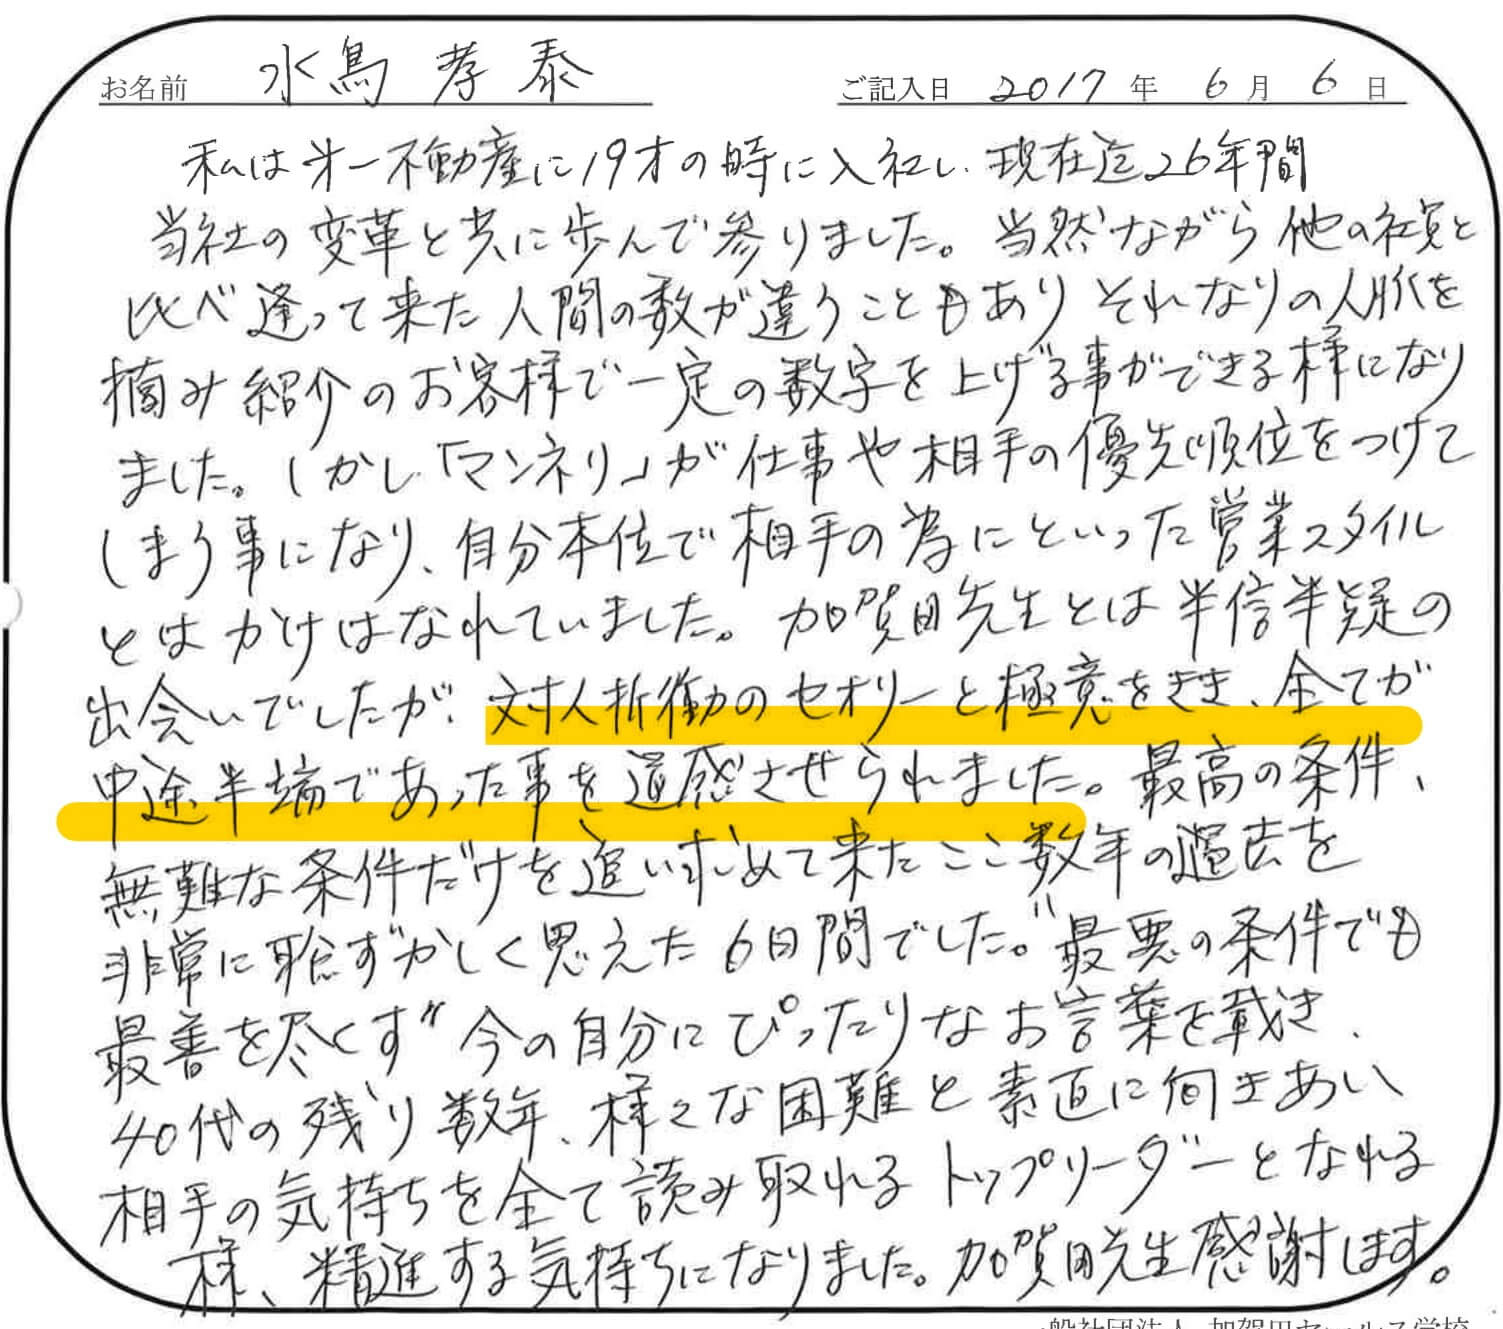 お名前 水鳥 孝泰 ご記入日 2017年 6月 6日
私は才一不動産に19才の時に入社し、現在迄26年間
当社の変革と共に歩んで参りました。当然ながら他の社員と
比べ逢って来た人間の数が違うこともありそれなりの人脈を
摘み紹介のお客様で一定の数字を上げる事ができる様になり
ました。しかし「マンネリ」が仕事や相手の優先順位をつけて
しまう事になり、自分本位で相手の為にといった営業スタイル
とはかけはなれていました。加賀田先生とは半信半疑の
出会いでしたが、対人折衝力のセオリーと極意をきき、全てが
中途半端であった事を道感させられました。最高の条件、
無難な条件だけを追い求めて来たここ数年の過去を
非常に恥ずかしく思えた6日間でした。"最悪の条件でも
最善を尽くす"今の自分にぴったりなお言葉を戴き、
40代の残り数年、様々な困難と素直に向きあい
相手の気持ちを全て読み取れるトップリーダーとなれる
様、精進する気持ちになりました。加賀田先生感謝します。
一般社団法人 加賀田セールス学校